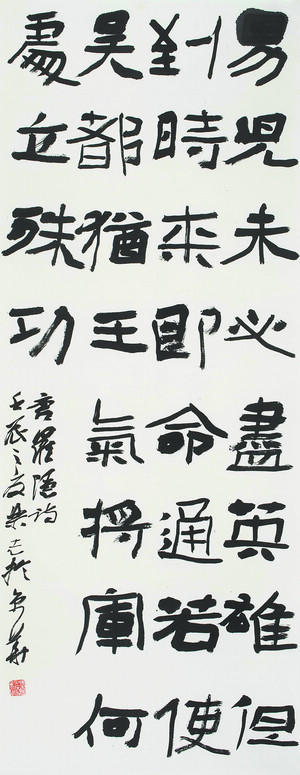 男兒未必盡英雄但
到時來即命通若使
吳都猶王氣將軍何
處立殊功
書羅隱詩
壬辰之夏於京華